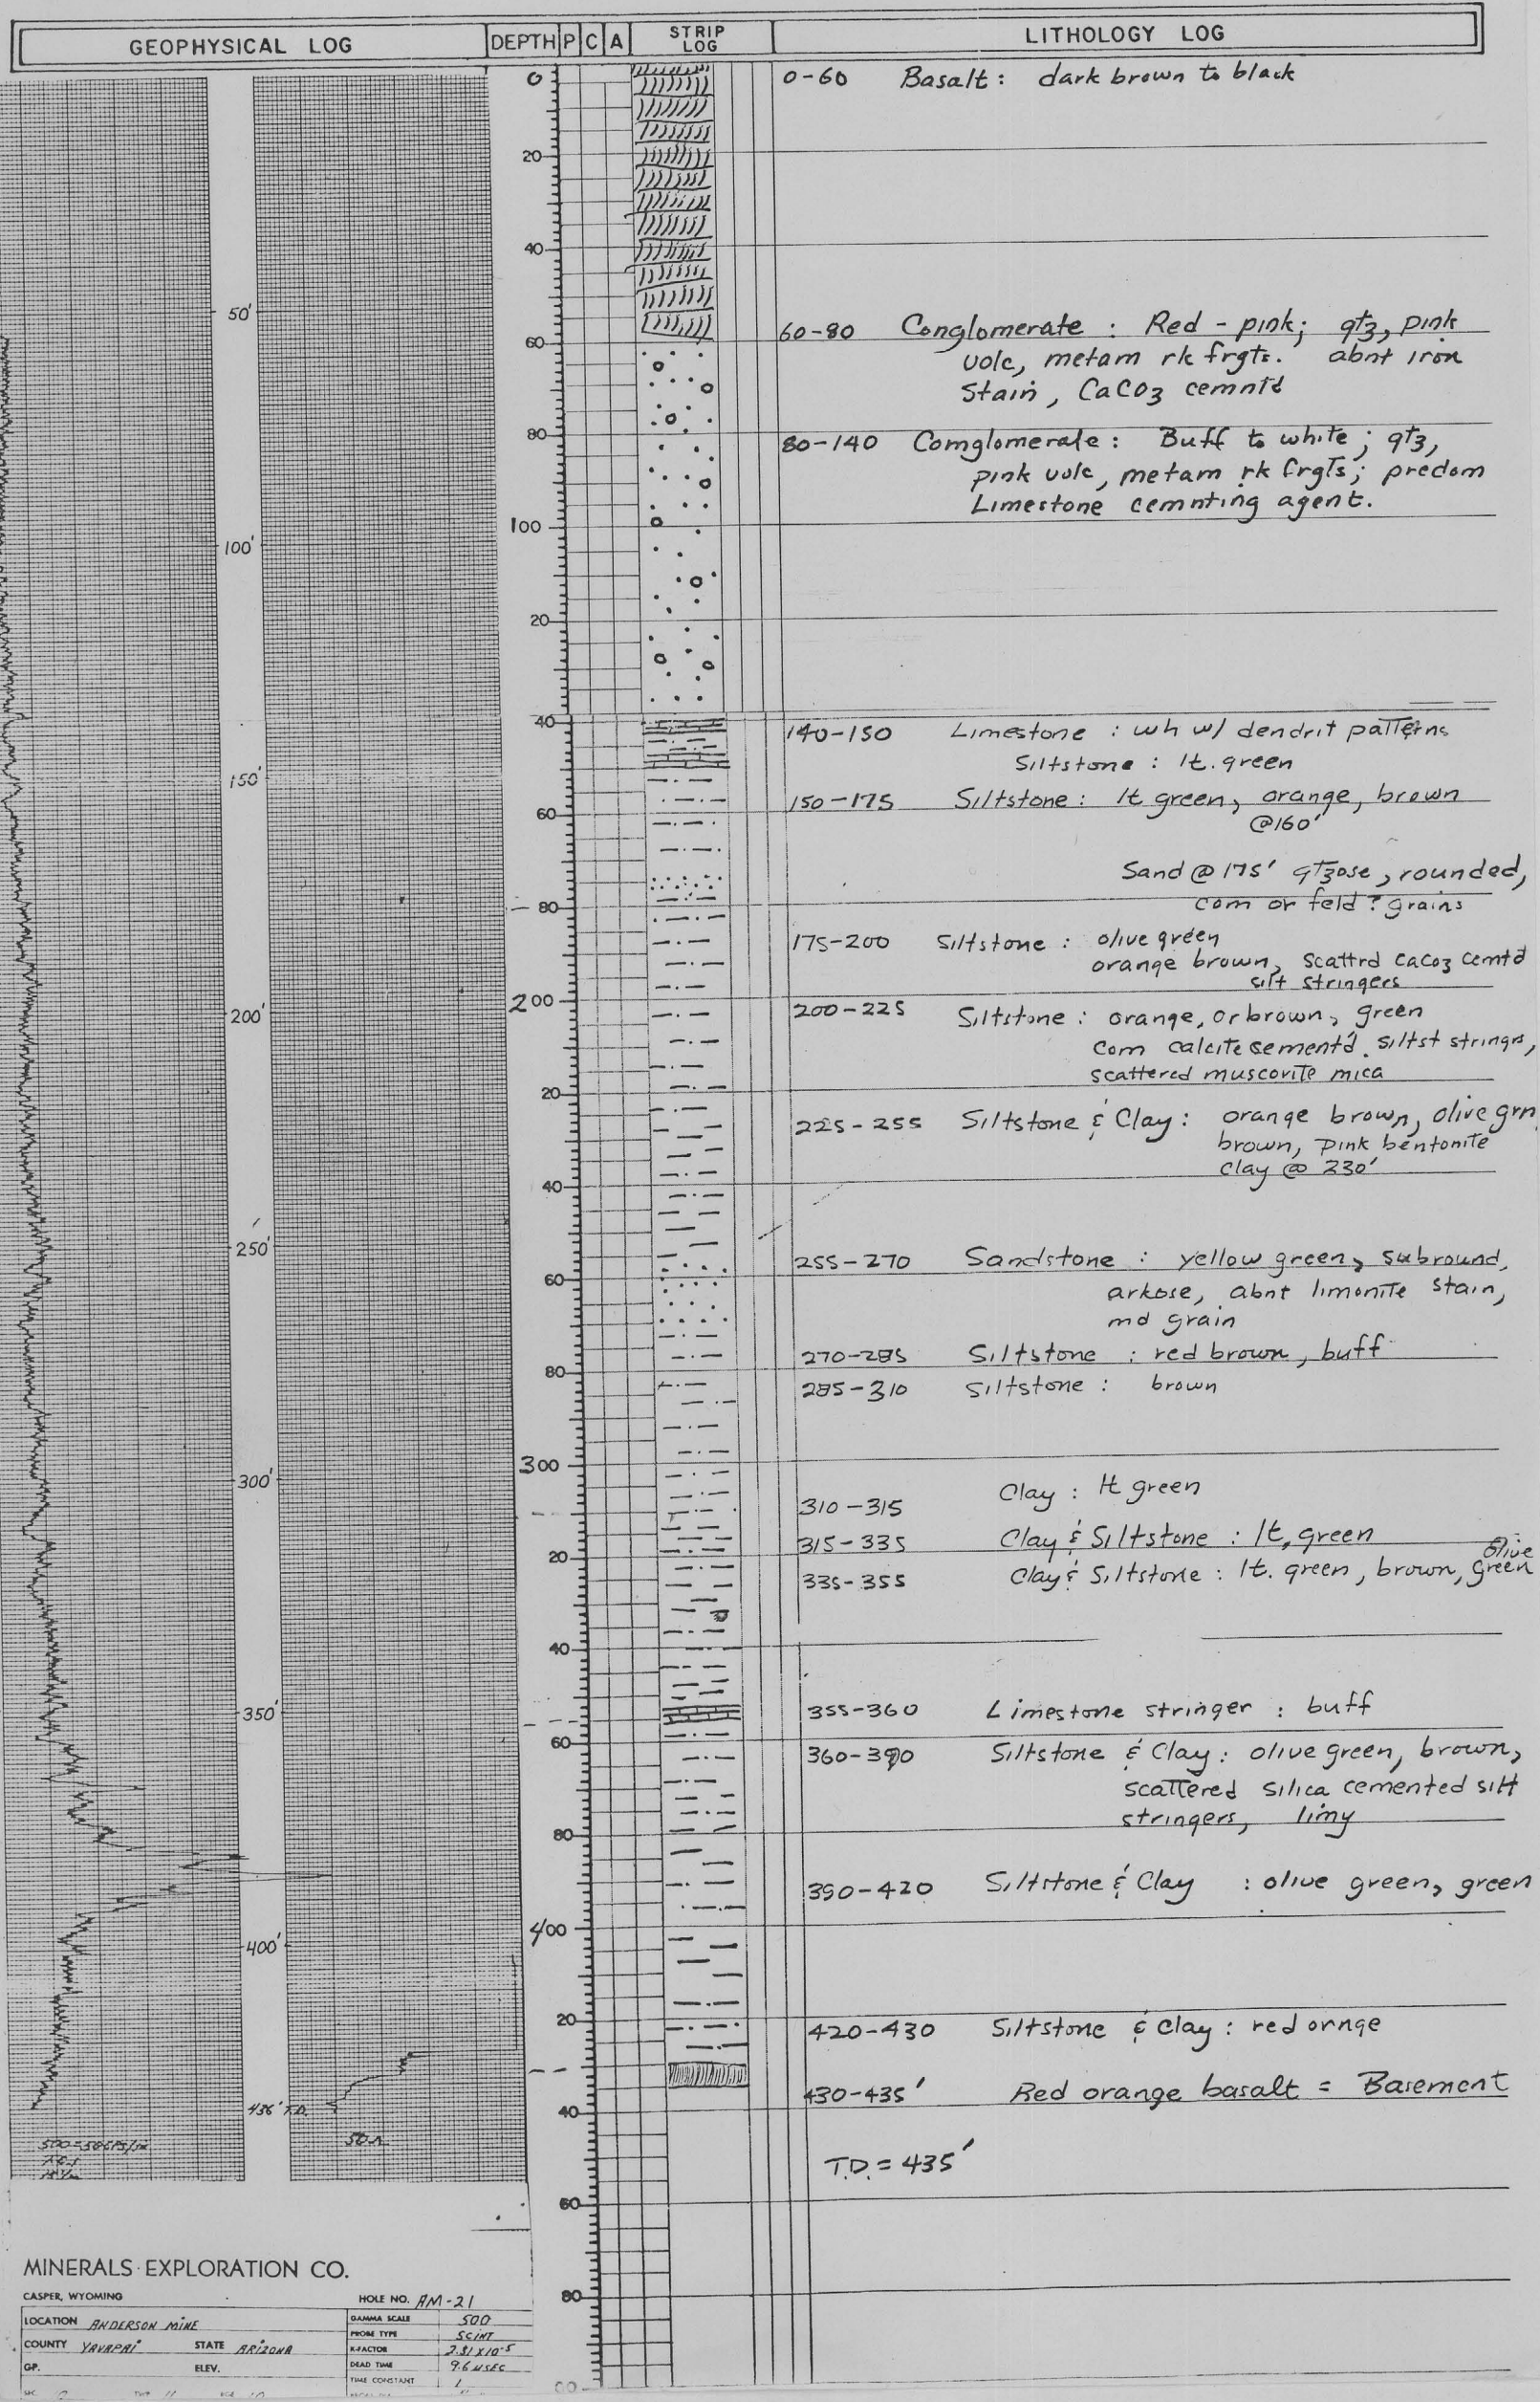 GEOPHYSICAL LOG DEPTH P C A STRIP LOG LITHOLOGY LOG
0
0-60 Basalt : dark brown to black
20
40
50'
60
60-80 Conglomerate : Red - pink; qtz, pink
volc, metam rk frgts. abnt iron
Stain, CaCO3 cemntd
80
80-140 Comglomerate : Buff to white ; qtz,
pink volc, metam rk frgts; predom
Limestone cemnting agent.
100
100'
20
40
140-150 Limestone : wh w/ dendrit patterns
Siltstone : lt. green
150'
150-175 Siltstone : lt green, orange, brown
@160'
60
Sand @ 175' qtzose, rounded,
com or feld ? grains
80
175-200 Siltstone : olive green
orange brown, scattrd CaCO3 cemtd
silt stringers
200
200'
200-225 Siltstone : orange, or brown, green
com calcite cement'd. siltst stringrs,
scattered muscovite mica
20
225-255 Siltstone & Clay : orange brown, olive grn
brown, pink bentonite
clay @ 230'
40
250'
255-270 Sandstone : yellow green, subround,
60
arkose, abnt limonite stain,
md grain
270-285 Siltstone : red brown, buff
80
285-310 Siltstone : brown
300
300'
310-315 Clay : lt green
315-335 Clay & Siltstone : lt. green
20
335-355 Clay & Siltstone : lt. green, brown, olive green
40
350'
355-360 Limestone stringer : buff
60
360-390 Siltstone & Clay : olive green, brown,
scattered silica cemented silt
stringers, limy
80
390-420 Siltstone & Clay : olive green, green
400
400'
20
420-430 Siltstone & Clay : red ornge
430-435' Red orange basalt = Basement
436' T.D.
40
50Ω
T.D. = 435'
60
80
00
MINERALS EXPLORATION CO.
CASPER, WYOMING HOLE NO. AM-21
LOCATION ANDERSON MINE GAMMA SCALE 500
PROBE TYPE SCINT
COUNTY YAVAPAI STATE ARIZONA K-FACTOR 2.31 X 10-5
GP. ELEV. DEAD TIME 9.6 µSEC
TIME CONSTANT 1